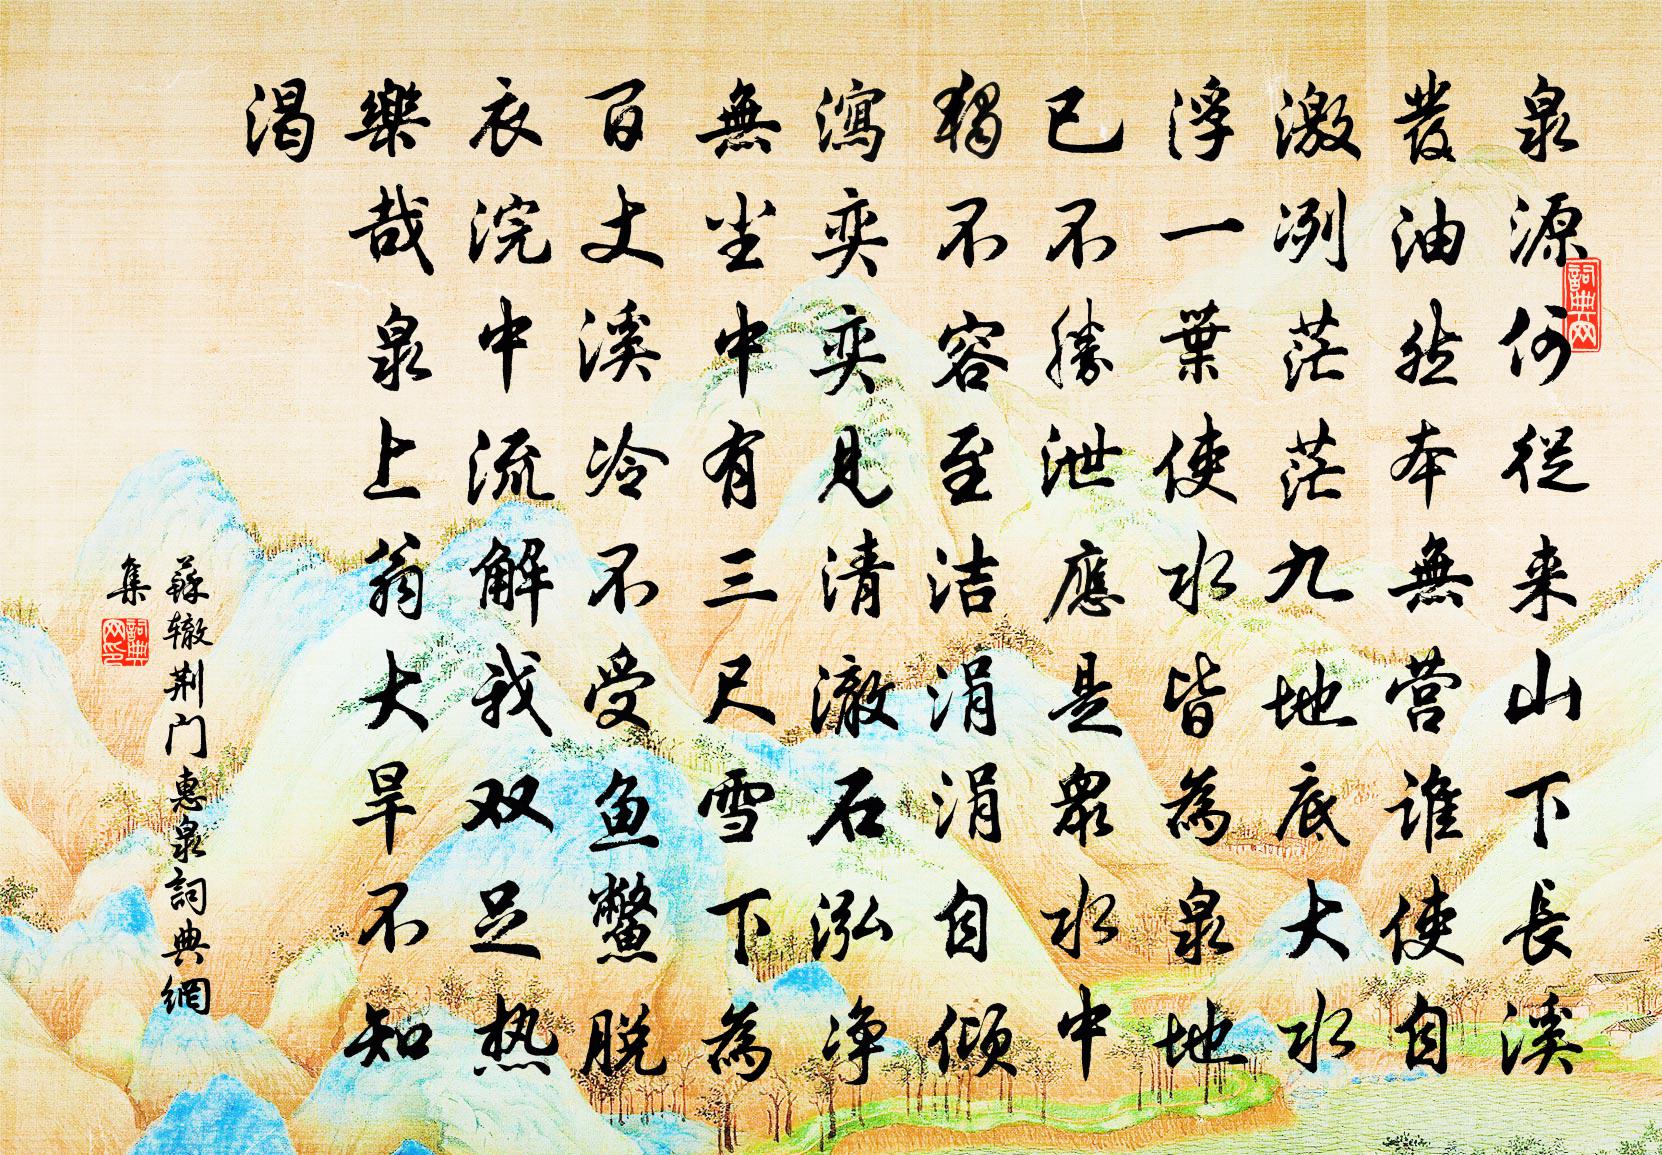 泉源何從来山下長溪
發油然本無营誰使自
激冽茫茫九地底大水
浮一葉使水皆為泉地
已不勝泄應是衆水中
獨不容至洁涓涓自傾
瀉奕奕見清澈石泓净
無尘中有三尺雪下為
百丈溪冷不受鱼鱉脱
衣浣中流解我双足热
樂哉泉上翁大旱不知
渴
蘇辙荆门惠泉詞典網
集
詞典网
詞典网印